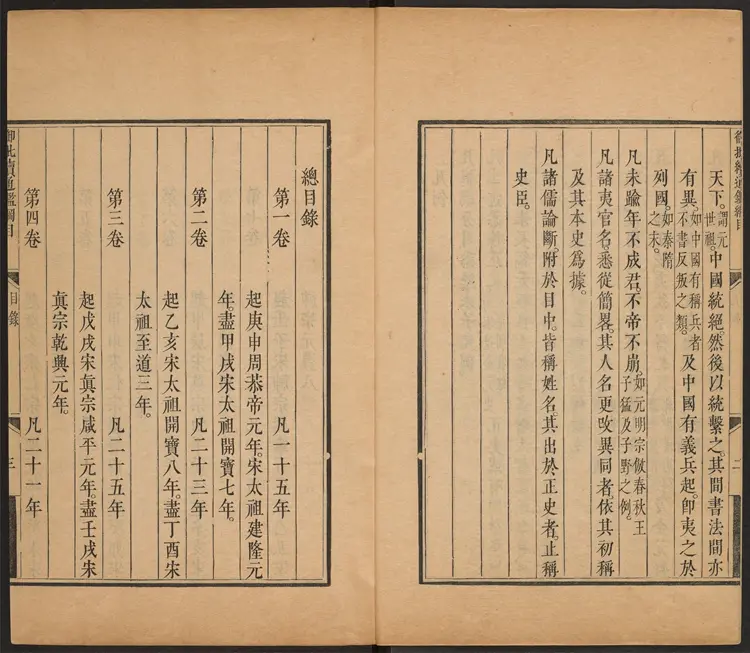 御批續通鑑綱目
二
天下。謂元世祖。中國統絕。然後以統繫之。其間書法間亦
有異。如中國有稱兵者不書反叛之類。及中國有義兵起。卽夷之於
列國。如秦隋之末。
凡未踰年不成君。不帝不崩。如元明宗倣春秋王子猛及子野之例。
凡諸夷官名。悉從簡畧。其人名更改異同者。依其初稱
及其本史爲據。
凡諸儒論斷。附於目中。皆稱姓名。其出於正史者。止稱
史臣。
總目錄
第一卷 凡一十五年
起庚申周恭帝元年。宋太祖建隆元
年。盡甲戌宋太祖開寶七年。
第二卷 凡二十三年
起乙亥宋太祖開寶八年。盡丁酉宋
太祖至道三年。
第三卷 凡二十五年
起戊戌宋眞宗咸平元年。盡壬戌宋
眞宗乾興元年。
第四卷 凡二十一年
御批續通鑑綱目 目錄 三